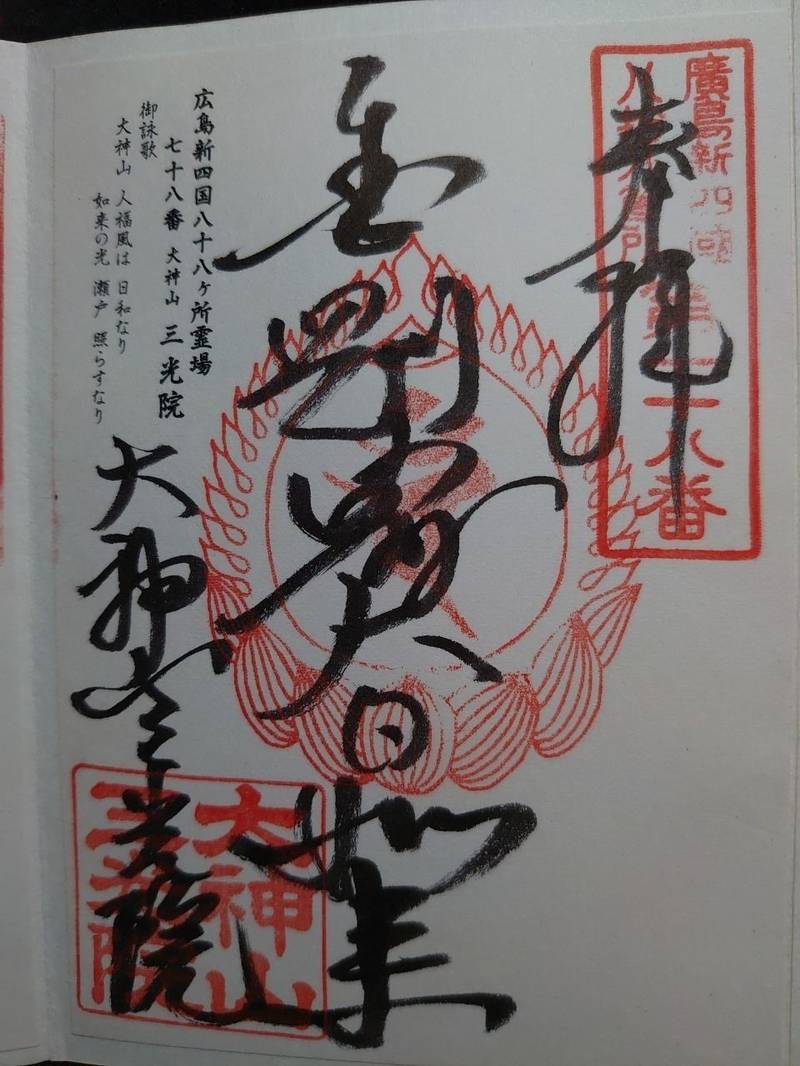 廣島新四國
第七十八番
奉拝
金剛界大日如来
広島新四国八十八ヶ所霊場
七十八番 大神山 三光院
御詠歌
大神山 人福風は 日和なり
如来の光 瀬戸 照らすなり
大神山三光院
大神山
三光院